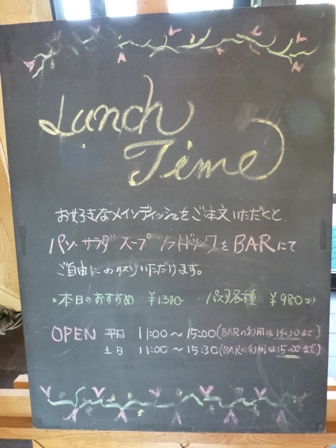 Lunch
Time
お好きなメインディッシュをご注文いただくと
パン サラダ スープ ソフトドリンクを BARにて
ご自由にお取りいただけます。
本日のおすすめ ¥1310 パスタ各種 ¥980
OPEN 平日 11:00～15:00 (BARの利用は14:30まで)
土日 11:00～15:30 (BARの利用は15:00まで)